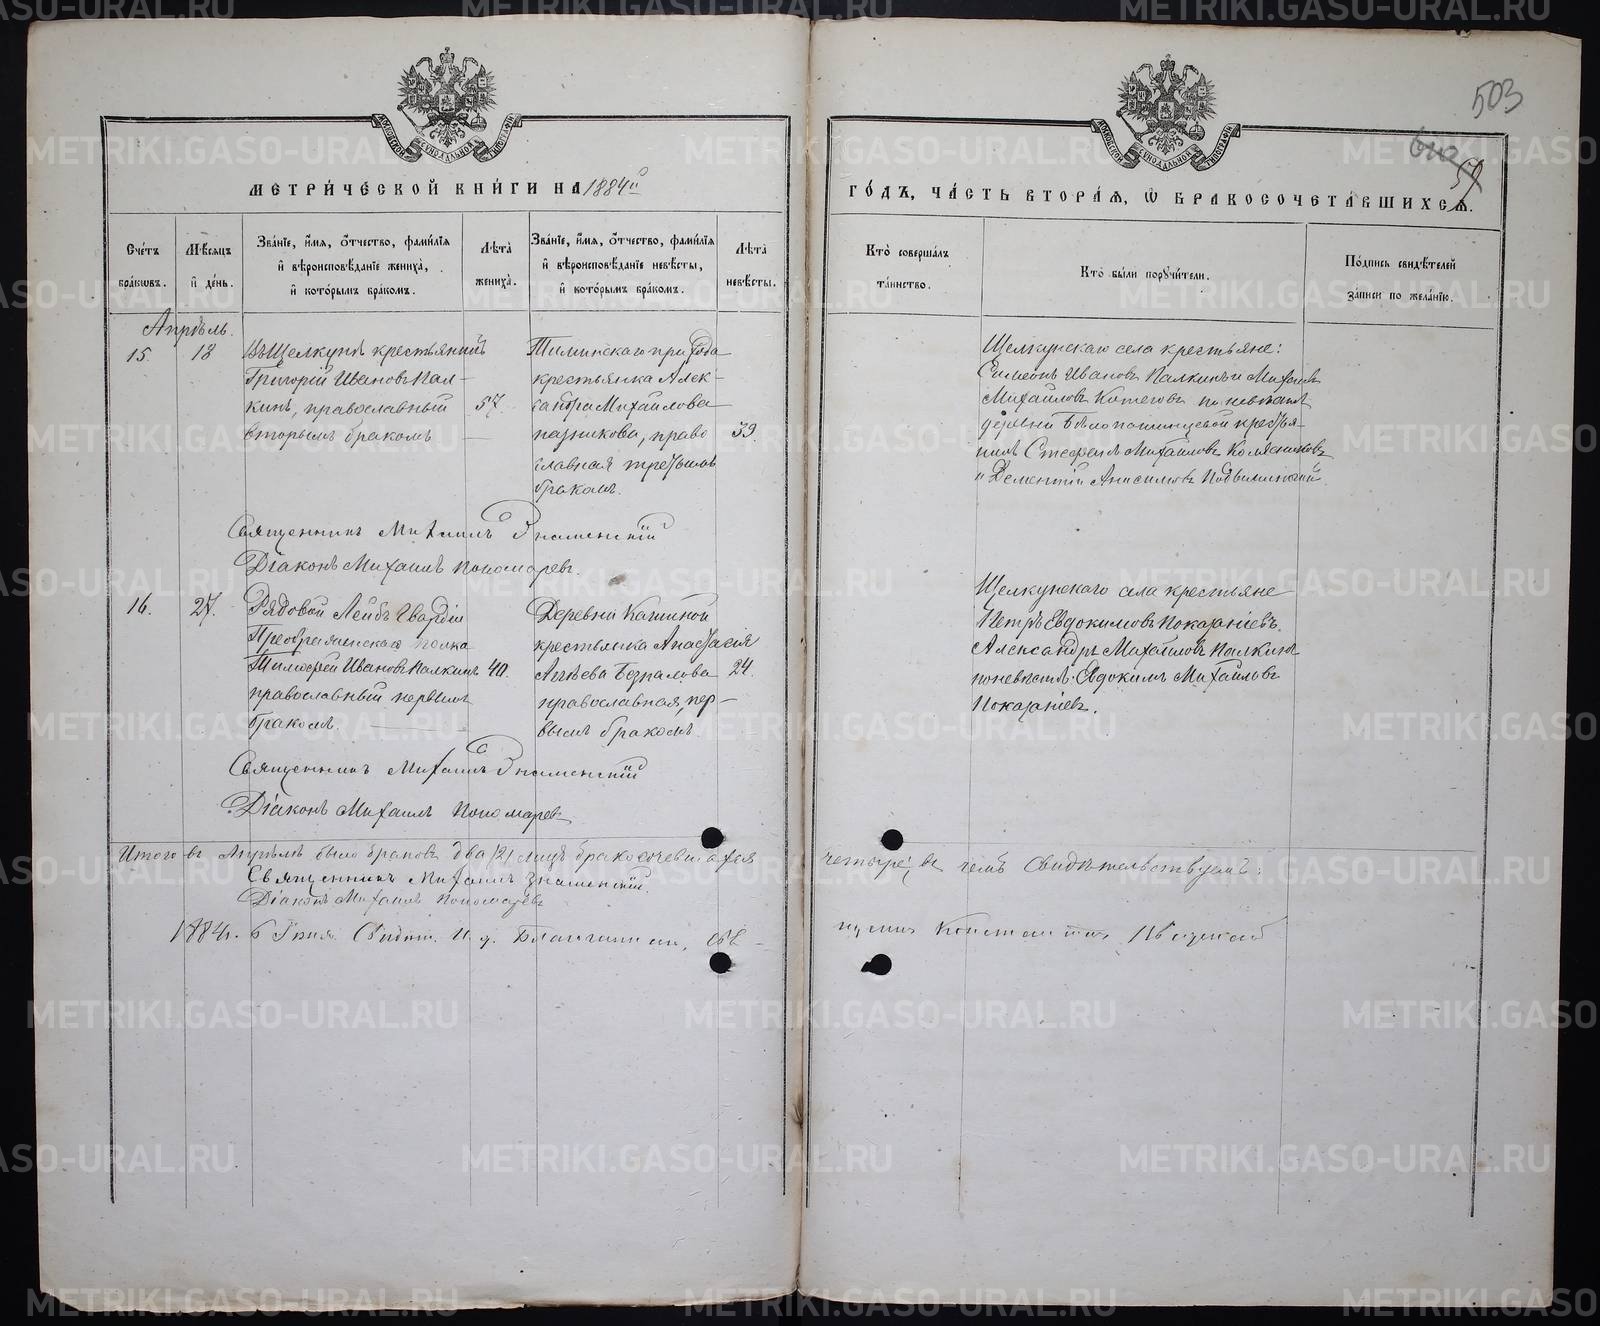 503
59
МЕТРИЧЕСКОЙ КНИГИ НА 1884й
ГОДЪ, ЧАСТЬ ВТОРАЯ, Ѡ БРАКОСОЧЕТАВШИХСЯ.
Счетъ браковъ.
Мѣсяцъ и день.
Званіе, имя, отчество, фамилія и вѣроисповѣданіе жениха, и которымъ бракомъ.
Лѣта жениха.
Званіе, имя, отчество, фамилія и вѣроисповѣданіе невѣсты, и которымъ бракомъ.
Лѣта невѣсты.
Кто совершалъ таинство.
Кто были поручители.
Подпись свидѣтелей записи по желанію.
Апрѣль.
15. 18
Крестьянинъ
Григорій Ивановъ Пал-
кинъ, православный
вторымъ бракомъ
57.
Тиминскаго прихода
крестьянка Алек-
сандра Михайлова
православная третьимъ
бракомъ.
39.
Щелкунскаго села крестьяне:
Симеонъ Ивановъ Палкинъ и Михаилъ
Михайловъ Котеговъ по невѣстѣ
деревни
Стефанъ Михайловъ
и Дементій Анисимовъ
Священникъ Михаилъ Знаменскій
Діаконъ Михаилъ Пономаревъ.
16. 27.
Рядовой Лейбъ Гвардіи
Преображенскаго полка
Тимофей Ивановъ Палкинъ
православный первымъ
бракомъ.
40.
Деревни Кашиной
крестьянка Анастасія
Аггѣева Безпалова
православная, пер-
вымъ бракомъ.
24.
Щелкунскаго села крестьяне
Петръ Евдокимовъ Показаніевъ.
Александръ Михайловъ Палкинъ
по невѣстѣ: Евдокимъ Михайловъ
Показаніевъ.
Священникъ Михаилъ Знаменскій
Діаконъ Михаилъ Пономаревъ
Итого въ Апрѣлѣ было браковъ два /2/ лицъ бракосочетавшихся четыре, въ чемъ свидѣтельствуемъ:
Священникъ Михаилъ Знаменскій.
Діаконъ Михаилъ Пономаревъ
1884 г. 6 Іюня. Свидѣт. И. д. Благочиннаго, свя-
METRIKI.GASO-URAL.RU